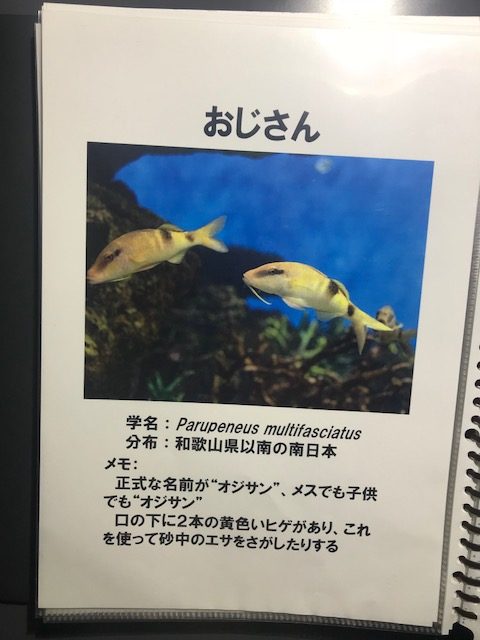 おじさん
学名：Parupeneus multifasciatus
分布：和歌山県以南の南日本
メモ：
正式な名前が“オジサン”、メスでも子供
でも“オジサン”
口の下に2本の黄色いヒゲがあり、これ
を使って砂中のエサをさがしたりする